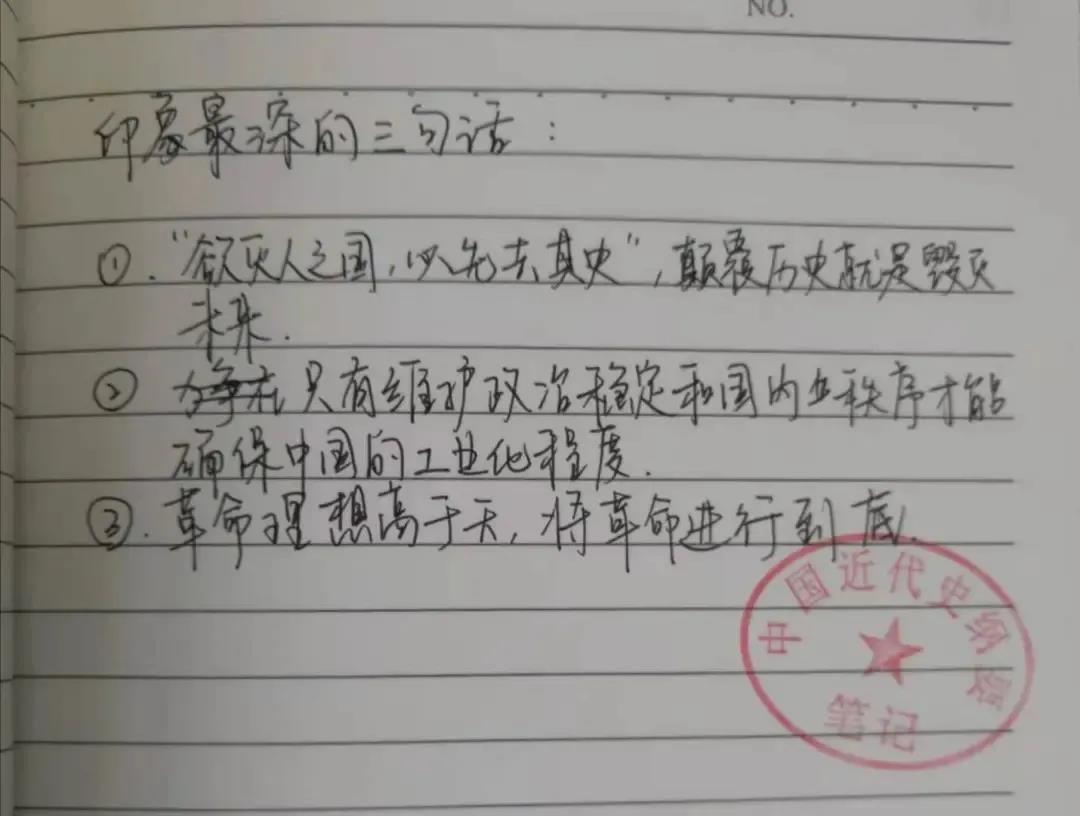 NO.
印象最深的三句话：
①."欲灭人之国,必先去其史",颠覆历史就是毁灭
未来.
② 只有维护政治稳定和国内业秩序才能
确保中国的工业化程度.
③.革命理想高于天,将革命进行到底.
中国近代史纲要
笔记